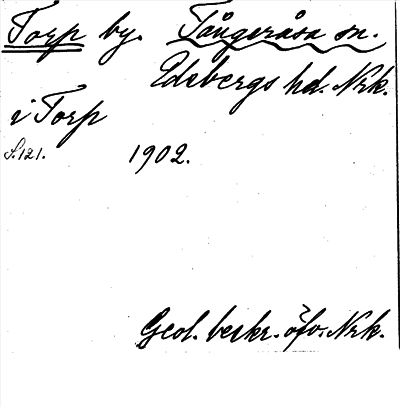 Torp by. Tångeråsa sn.
Edsbergs hd. Nrk.
i Torp
S. 121. 1902.
Geol. beskr. öfv. Nrk.